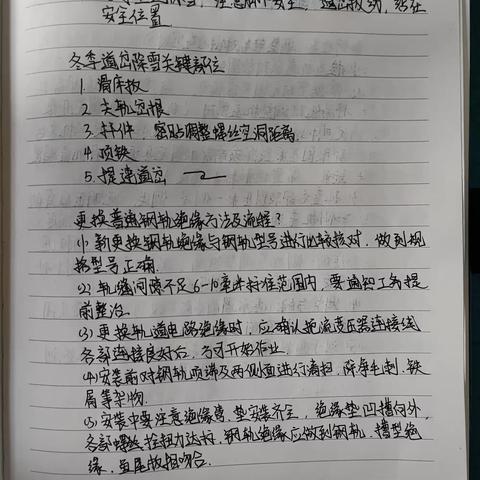 安全位置
冬季道岔除雪关键部位
1. 滑床板
2. 尖轨岔根
3. 杆件 密贴调整螺丝空洞距离.
4. 顶铁
5. 提速道岔
更换普通钢轨绝缘方法及流程?
(1) 新更换钢轨绝缘与钢轨型号进行比较核对. 做到规
格型号正确.
(2) 轨缝间隙不足6-10毫米标准范围内, 要通知工务提
前整治.
(3) 更换轨道电路绝缘时, 应确认扼流变压器连接线
各部连接良好后, 方可开始作业.
(4) 安装前对钢轨顶端及两侧面进行清扫, 除净毛刺. 铁
屑等杂物.
(5) 安装中要注意绝缘管. 垫安装齐全, 绝缘垫凹槽向外
各部螺丝拴扭力达标, 钢轨绝缘应做到钢轨. 槽型绝
缘. 鱼尾板相吻合.